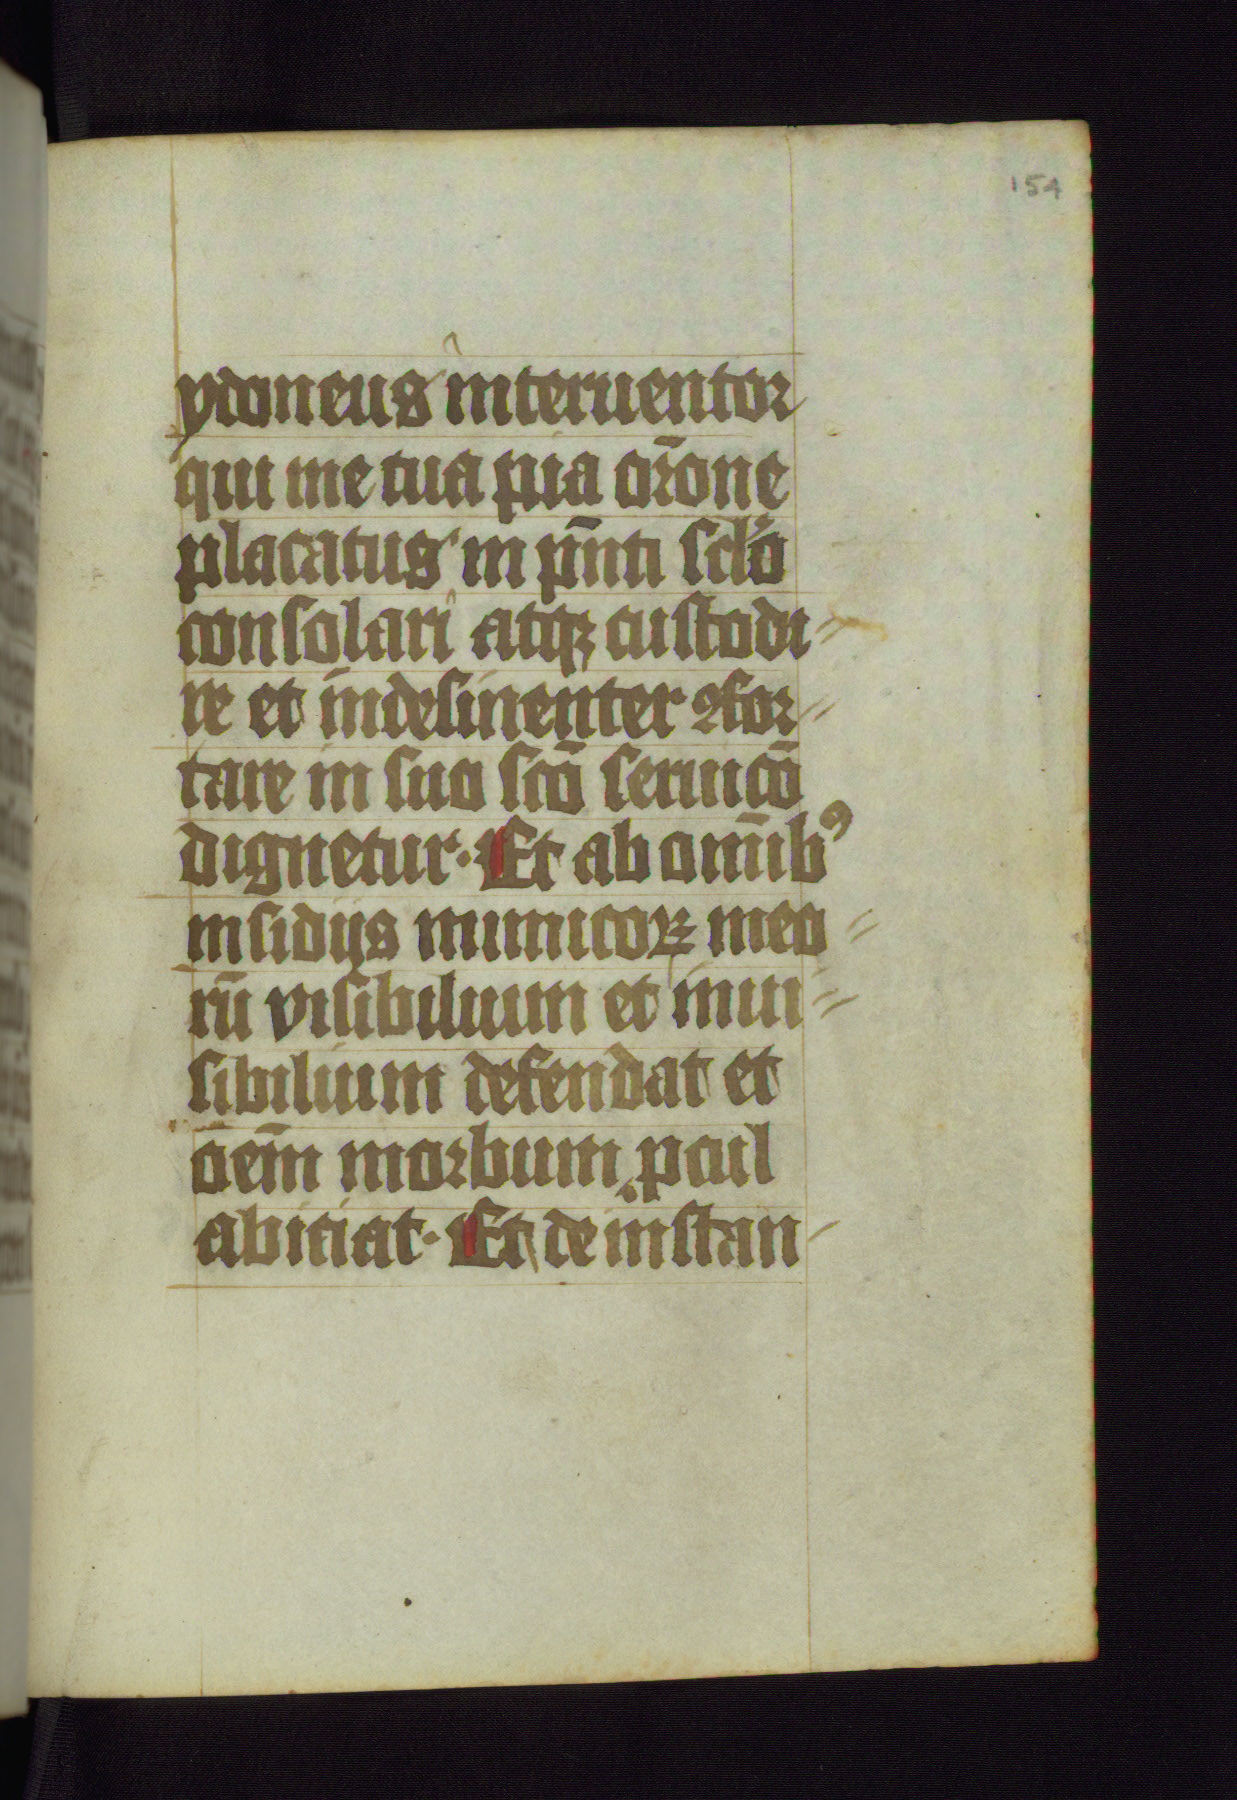 154
ydoneus interuentor
qui me tua pia or̄one
placatus in pn̄ti sclō
consolari atqꝫ custodi⸗
re et indesinenter ꝯfor⸗
tare in suo scō seruicō
dignetur· Et ab om̄ibꝰ
insidijs inimicoꝝ meo⸗
rū visibilium et inui⸗
sibilium defendat et
oem̄ morbum ꝓcul
abiciat· Et de instan-